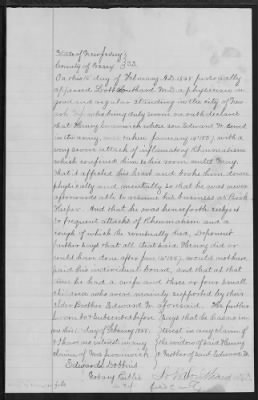 State of New Jersey }
County of Essex } SS.
On this day of February A.D. 1888 personally
appeared Lott Southard M.D. a physician in
good and regular standing in the city of New
ark N.J. who being duly sworn on oath declares
that Henry whose son Edward served
in the army, was taken January 1st 1857, with a
very severe attack of inflammatory Rheumatism
which confined him to his room until May,
that it affected his heart and broke him down
physically and mentally so that he was never
afterwards able to resume his business as Book
Keeper. And that he was henceforth subject
to frequent attacks of Rheumatism and
cough of which he eventually died, Deponent
further says that all that said Henry did or
could have done after Jan 1st 1857, would not have
paid his individual board, and that at that
time he had a wife and three or four small
children who were mainly supported by their
elder Brother Edward aforesaid. He further
says that he has no in
terest in any claim of
the mother of said Henry
or Mother of said Edward
Sworn to & Subscribed before
me this day of February 1888.
& I have no interest in any
claim of
Edwards Dobbins
Notary Public
N.J.